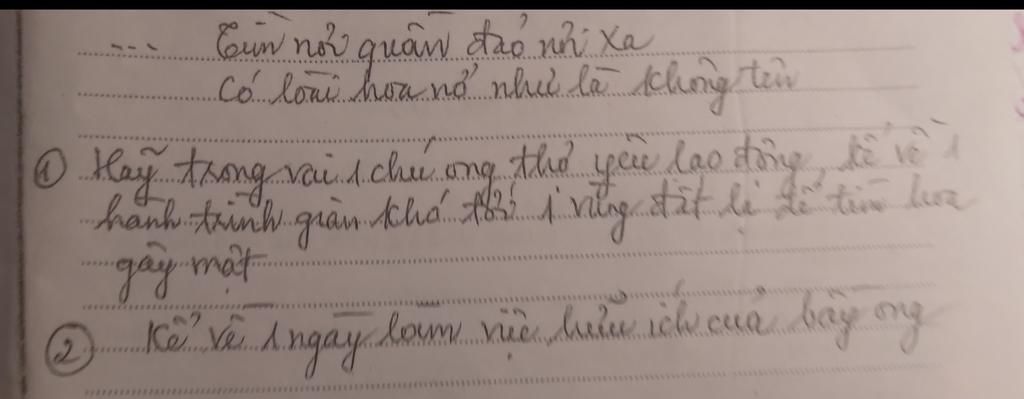 ... Tìm nơi quần đảo nơi xa
Có loài hoa nở như là không tên
① Hãy trong vai 1 chú ong thợ yêu lao động, kể về 1
hành trình gian khó tới 1 vùng đất lạ để tìm hoa
gây mật
② Kể về 1 ngày làm việc hữu ích của bầy ong